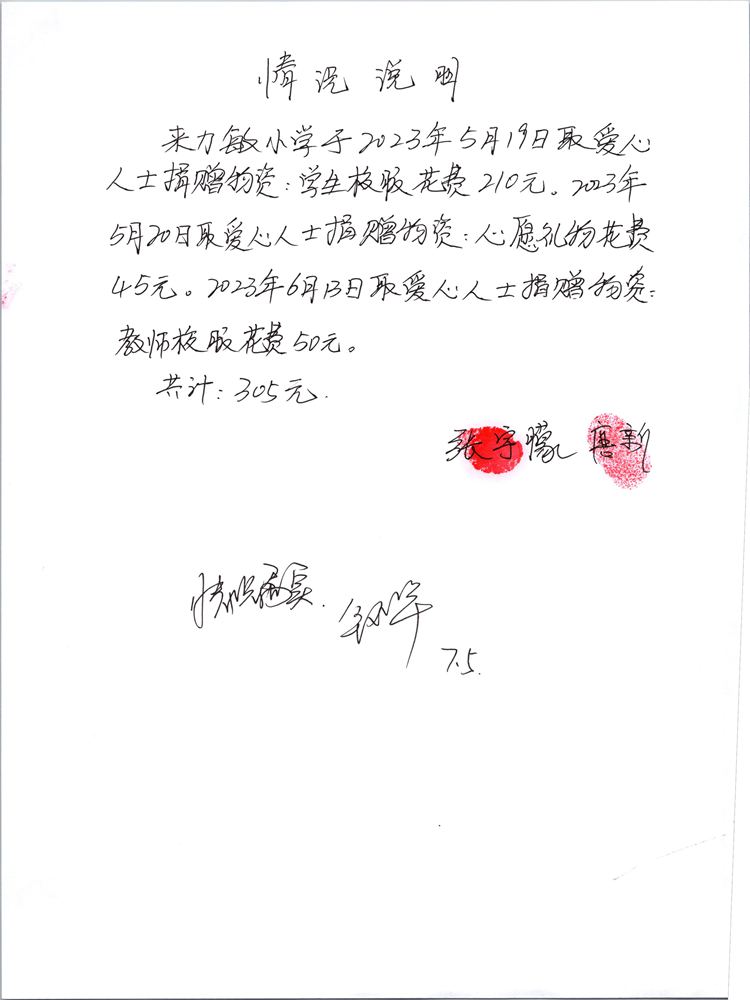 情况说明
来力敏小学于2023年5月19日取爱心
人士捐赠物资：学生校服花费210元。2023年
5月20日取爱心人士捐赠物资：心愿礼物花费
45元。2023年6月13日取爱心人士捐赠物资：
教师校服花费50元。
共计：305元.
张宇朦 唐新
情况属实.
7.5.